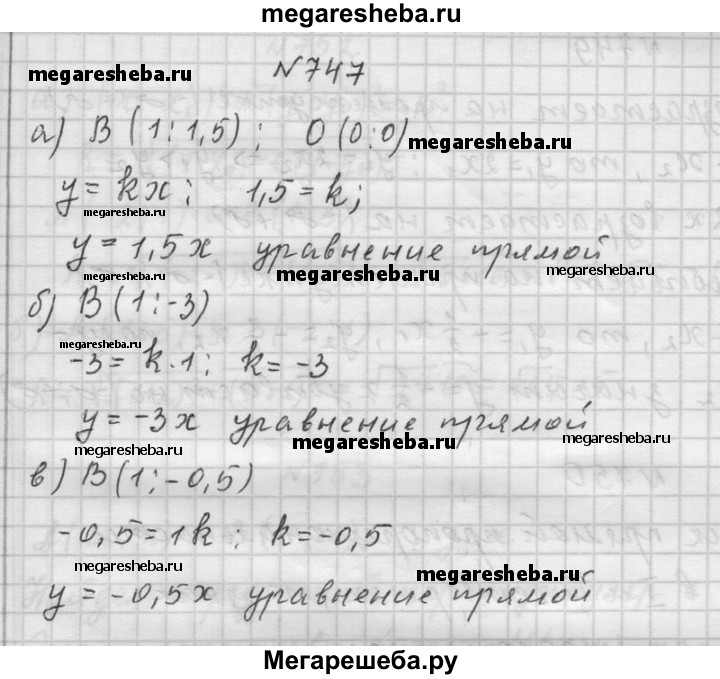 megaresheba.ru
megaresheba.ru
№747
а) В (1; 1,5); О (0;0) megaresheba.ru
y = kx; 1,5 = k;
megaresheba.ru
y = 1,5x уравнение прямой
megaresheba.ru megaresheba.ru megaresheba.ru
б) В (1; -3)
megaresheba.ru
-3 = k·1; k = -3
y = -3x уравнение прямой
megaresheba.ru megaresheba.ru megaresheba.ru
в) В (1; -0,5)
-0,5 = 1k; k = -0,5
megaresheba.ru megaresheba.ru
y = -0,5x уравнение прямой
megaresheba.ru
Мегарешеба.ру